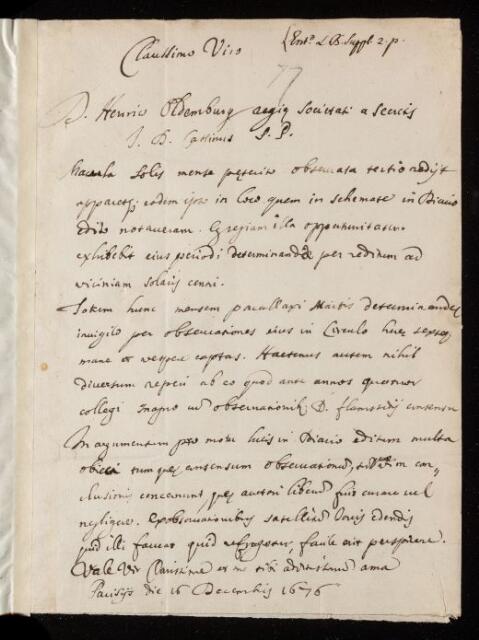 Clarissimo Viro
Ent.d L.B. Suppl. 2. p.
77
D. Henrico Oldemburg Regiæ Societati a Secretis
J. D. Cassinus S. P.
Macula Solis mense præterito observata tertio redijt
apparetq; eodem ipso in loco quem in schemate in Diario
edito notaveram. Egregiam illa opportunitatem
exhibebit eius periodi determinandæ per reditum ad
viciniam solaris centri.
Totum hunc mensem parallaxi Martis determinandæ
invigilo per observationes eius in Circulo horæ sextæ
mane et vespere captas. Hactenus autem nihil
diversum reperi ab eo quod ante annos quatuor
collegi magno cum observationib; D. flamstedij consensu
In argumentum pro motu lucis in Diario editum multa
obieci tum quæ consensum observationum, tum
conclusionis concernunt, quæ autori liberum fuit curare vel
negligere. Ex observationibus satellitum Iovis edendis
quid illi faveat quid refragetur, facile erit perspicere.
Vale Vir Clarissime et me tibi addictissimum ama
Parisijs die 16 Decembris 1676